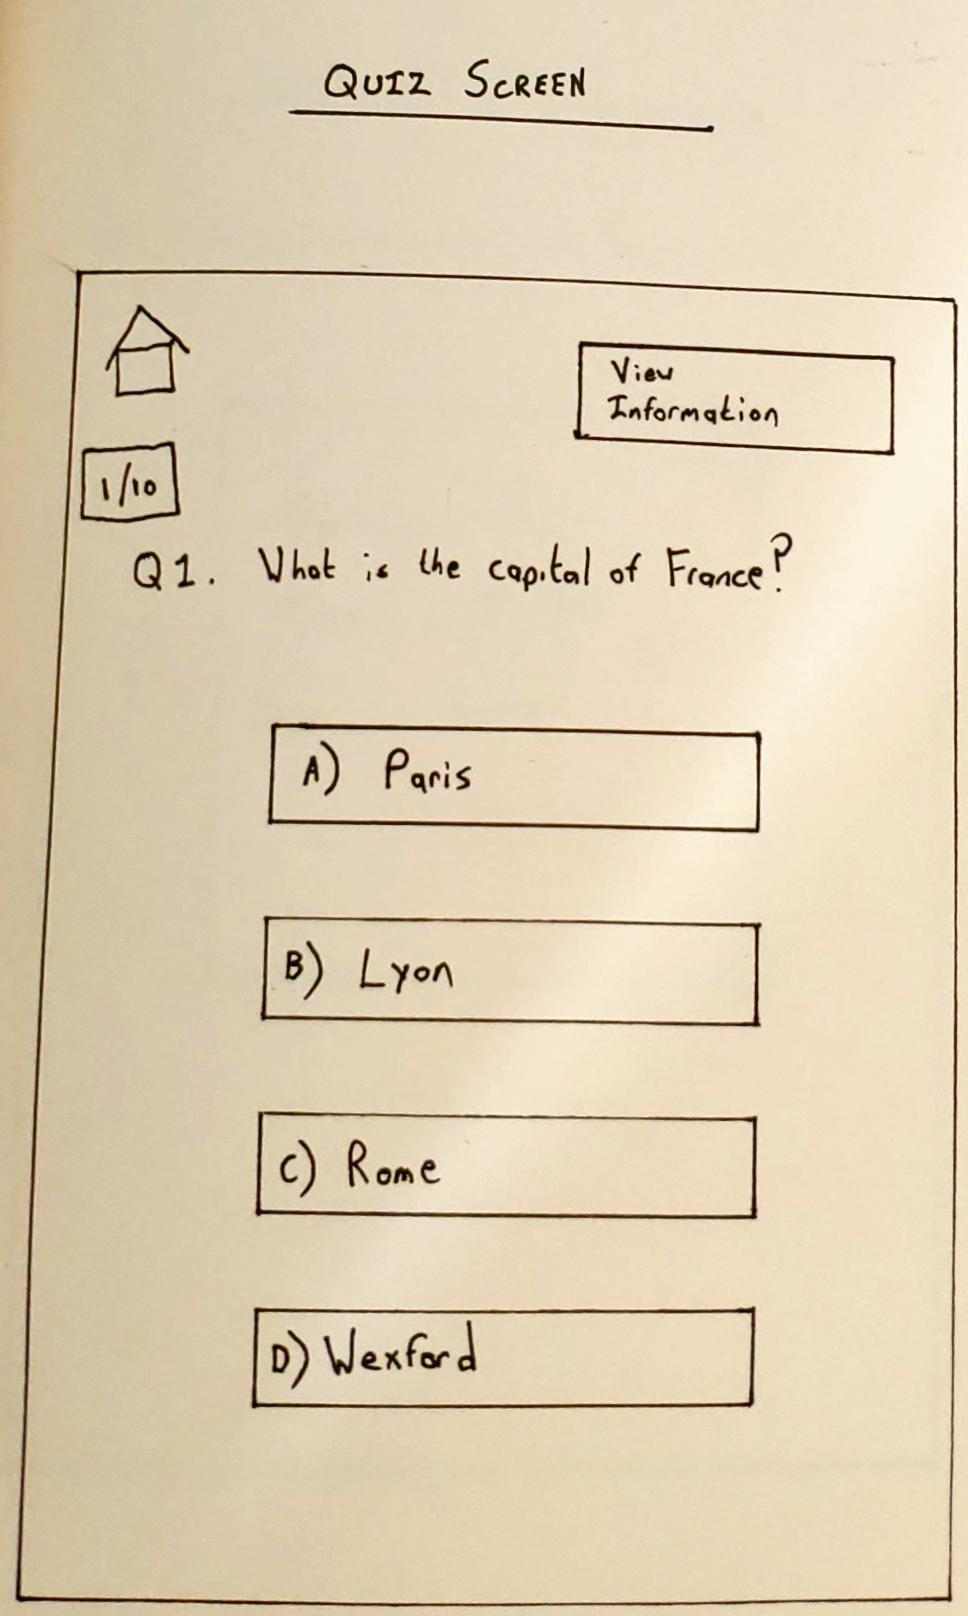 QUIZ SCREEN
View
Information
1/10
Q1. What is the capital of France?
A) Paris
B) Lyon
C) Rome
D) Wexford